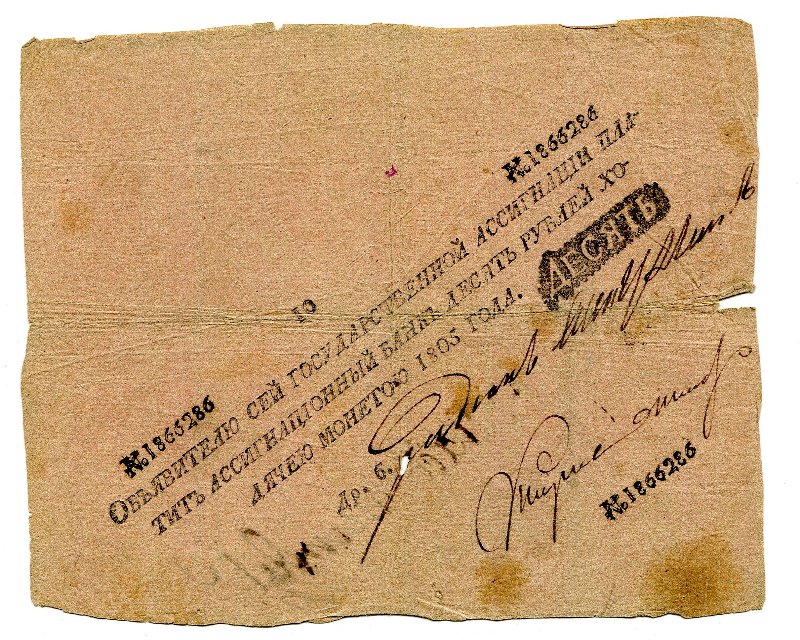 №1866286
10
№1866286
Объявителю сей государственной ассигнаціи пла-
титъ ассигнаціонный банкъ десять рублей хо-
дячею монетою 1805 года.
ДЕСЯТЬ
Др. б.
№1866286